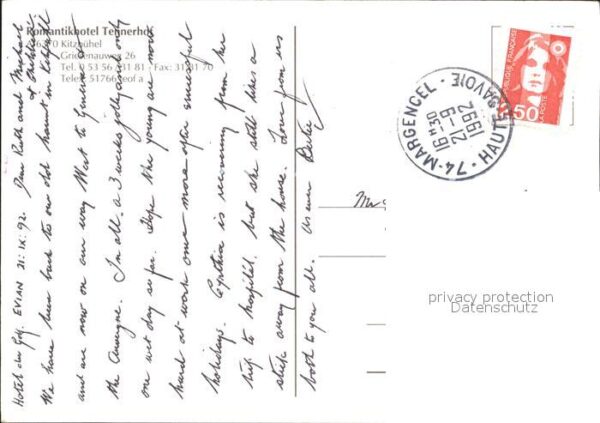 Romantikhotel Tennerhof
A-6370 Kitzbühel
Griesenauweg 26
Tel. 0 53 56/31 81 · Fax: 31 81 70
Telex 51766 teof a
Hotel du Golf. EVIAN 21·IX·92. Dear Ruth and Michael
We have been back to our old haunt in Kitzbühel
and are now on our way West to Geneva and
the Auvergne. In all a 3 weeks jolly and only
one wet day so far. Hope the young are now
hard at work once more after successful
holidays. Cynthia is recovering from her
trip to hospital, but she still likes a
stick away from the house. Love from us
both to you all. as ever
Mr
74-MARGENCEL - HAUTE SAVOIE
16 H 30
21-9
1992
RÉPUBLIQUE FRANÇAISE
LA POSTE
2,50
privacy protection
Datenschutz